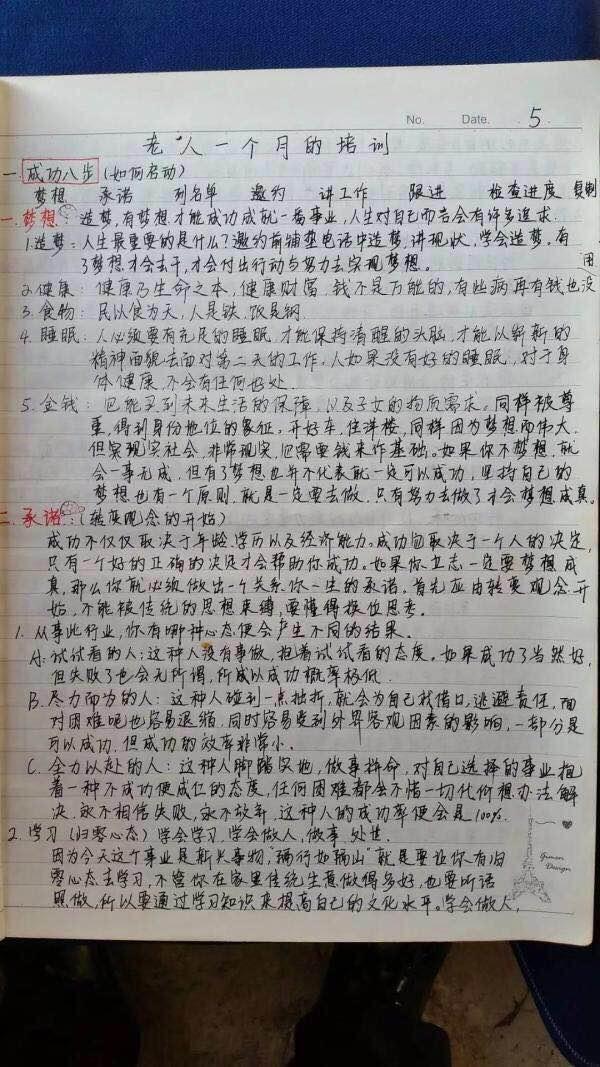 No. Date. 5.
老人一个月的培训
一. 成功八步 (如何启动)
梦想 承诺 列名单 邀约 讲工作 跟进 检查进度 复制
一. 梦想: 造梦, 有梦想才能成功成就一番事业, 人生对自己而言会有许多追求.
1. 造梦: 人生最重要的是什么? 邀约前铺垫电话中造梦, 讲现状, 学会造梦. 有
了梦想才会去干, 才会付出行动与努力去实现梦想。
2. 健康: 健康乃生命之本, 健康财富. 钱不是万能的, 有些病再有钱也没用
3. 食物: 民以食为天, 人是铁, 饭是钢.
4. 睡眠: 人必须要有充足的睡眠, 才能保持清醒的头脑, 才能以崭新的
精神面貌去面对第二天的工作. 人如果没有好的睡眠, 对于身
体健康, 不会有任何好处.
5. 金钱: 它能买到未来生活的保障, 以及子女的物质需求。同样被尊
重, 得到身份地位的象征, 开好车, 住洋楼, 同样因为梦想而伟大.
但实现实社会, 非常现实, 它需要钱来作基础。如果你不梦想, 就
会一事无成, 但有了梦想也并不代表就一定可以成功, 坚持自己的
梦想也有一个原则. 就是一定要去做. 只有努力去做了才会梦想成真。
二. 承诺: (转变观念的开始)
成功不仅仅取决于年龄, 学历以及经济能力。成功的取决于一个人的决定,
只有一个好的正确的决定才会帮助你成功。如果你立志一定要梦想成
真, 那么你就必须做出一个关系你一生的承诺。首先应由转变观念开
始, 不能被传统的思想束缚, 要懂得换位思考。
1. 从事此行业, 你有哪种心态便会产生不同的结果。
A. 试试看的人: 这种人没有事做, 抱着试试看的态度。如果成功了当然好,
但失败了也会无所谓, 所成以成功概率极低.
B. 尽力而为的人: 这种人碰到一点挫折, 就会为自己找借口, 逃避责任, 面
对困难吧也容易退缩. 同时容易受到外界客观因素的影响, 一部分是
可以成功. 但成功的效率非常小.
C. 全力以赴的人: 这种人脚踏实地, 做事拼命, 对自己选择的事业抱
着一种不成功便成仁的态度, 任何困难都会不惜一切代价想办法解
决. 永不相信失败, 永不放弃, 这种人的成功率便会是100%.
2. 学习 (归零心态) 学会学习, 学会做人, 做事, 处世.
因为今天这个事业是新兴事物, "隔行如隔山" 就是要让你有归
零心态去学习, 不管你在家里传统生意做得多好, 也要听话
照做, 所以要通过学习知识来提高自己的文化水平。学会做人,
Design